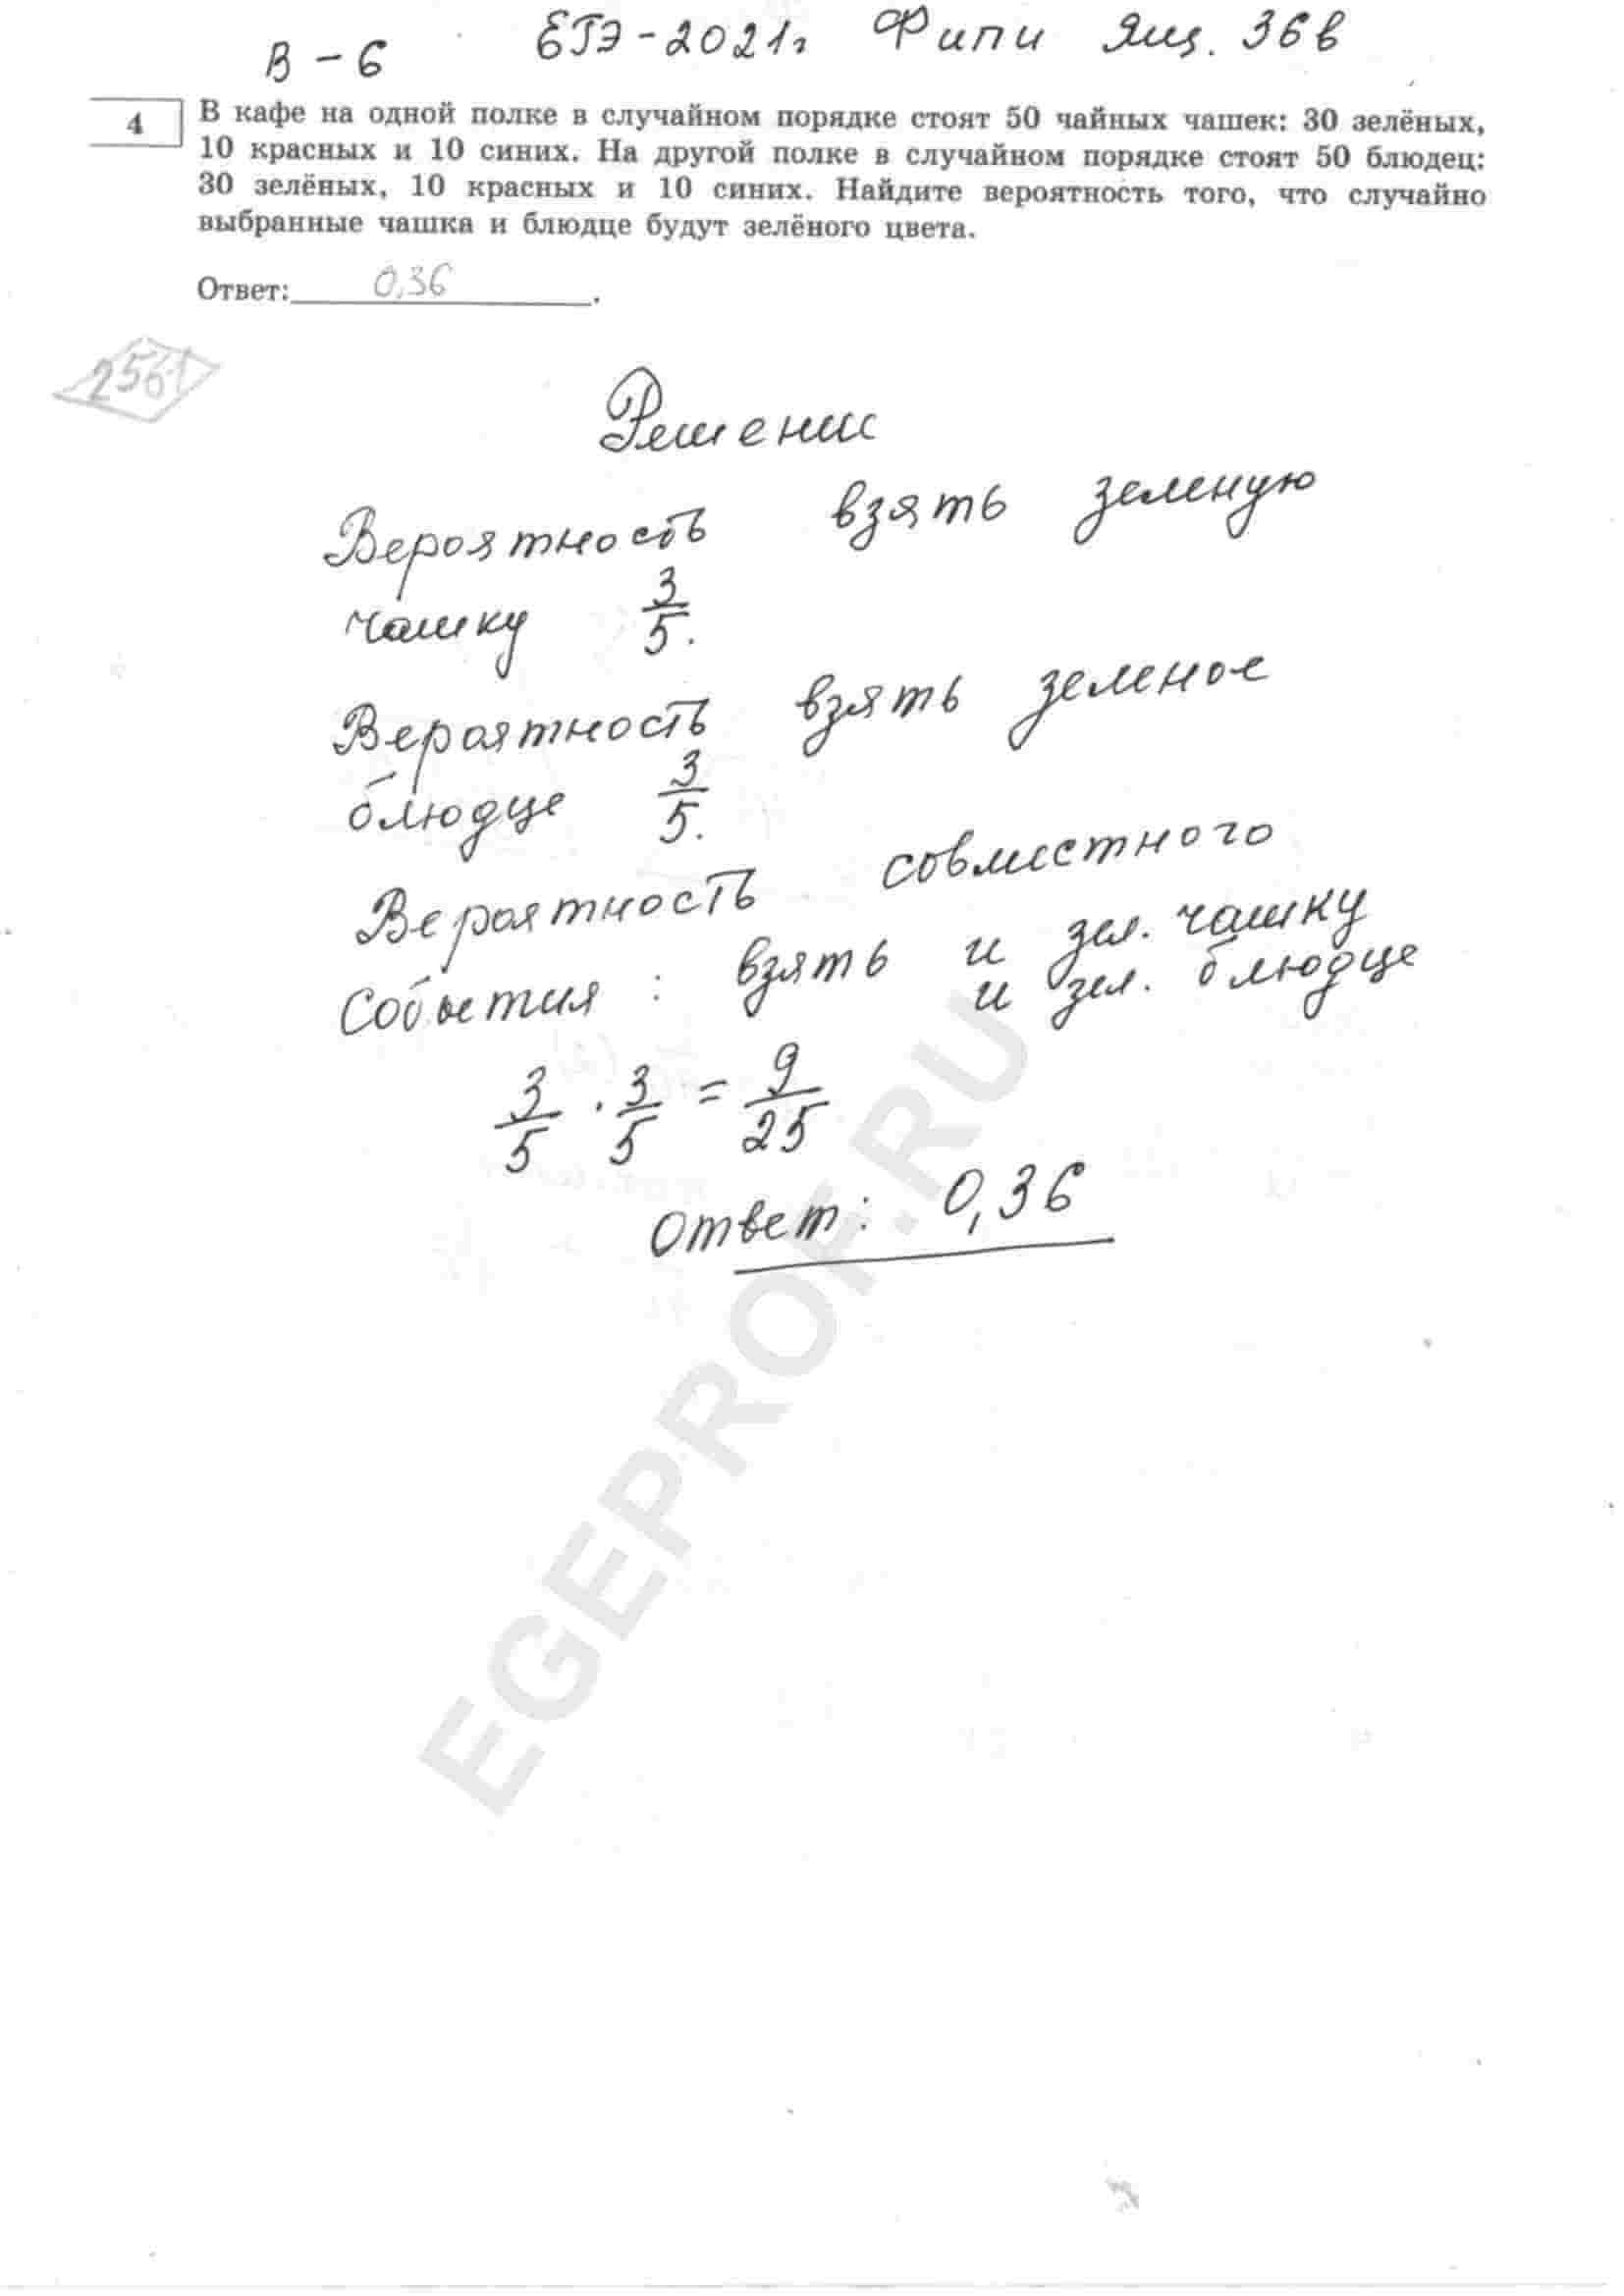 В - 6 ЕГЭ-2021г Фипи Ящ. 36в
4
В кафе на одной полке в случайном порядке стоят 50 чайных чашек: 30 зелёных,
10 красных и 10 синих. На другой полке в случайном порядке стоят 50 блюдец:
30 зелёных, 10 красных и 10 синих. Найдите вероятность того, что случайно
выбранные чашка и блюдце будут зелёного цвета.
Ответ: 0,36.
256-1
Решение
Вероятность взять зеленую
чашку 3/5.
Вероятность взять зеленое
блюдце 3/5.
Вероятность совместного
События: взять и зел. чашку
и зел. блюдце
3/5 · 3/5 = 9/25
Ответ: 0,36
EGEPROF.RU